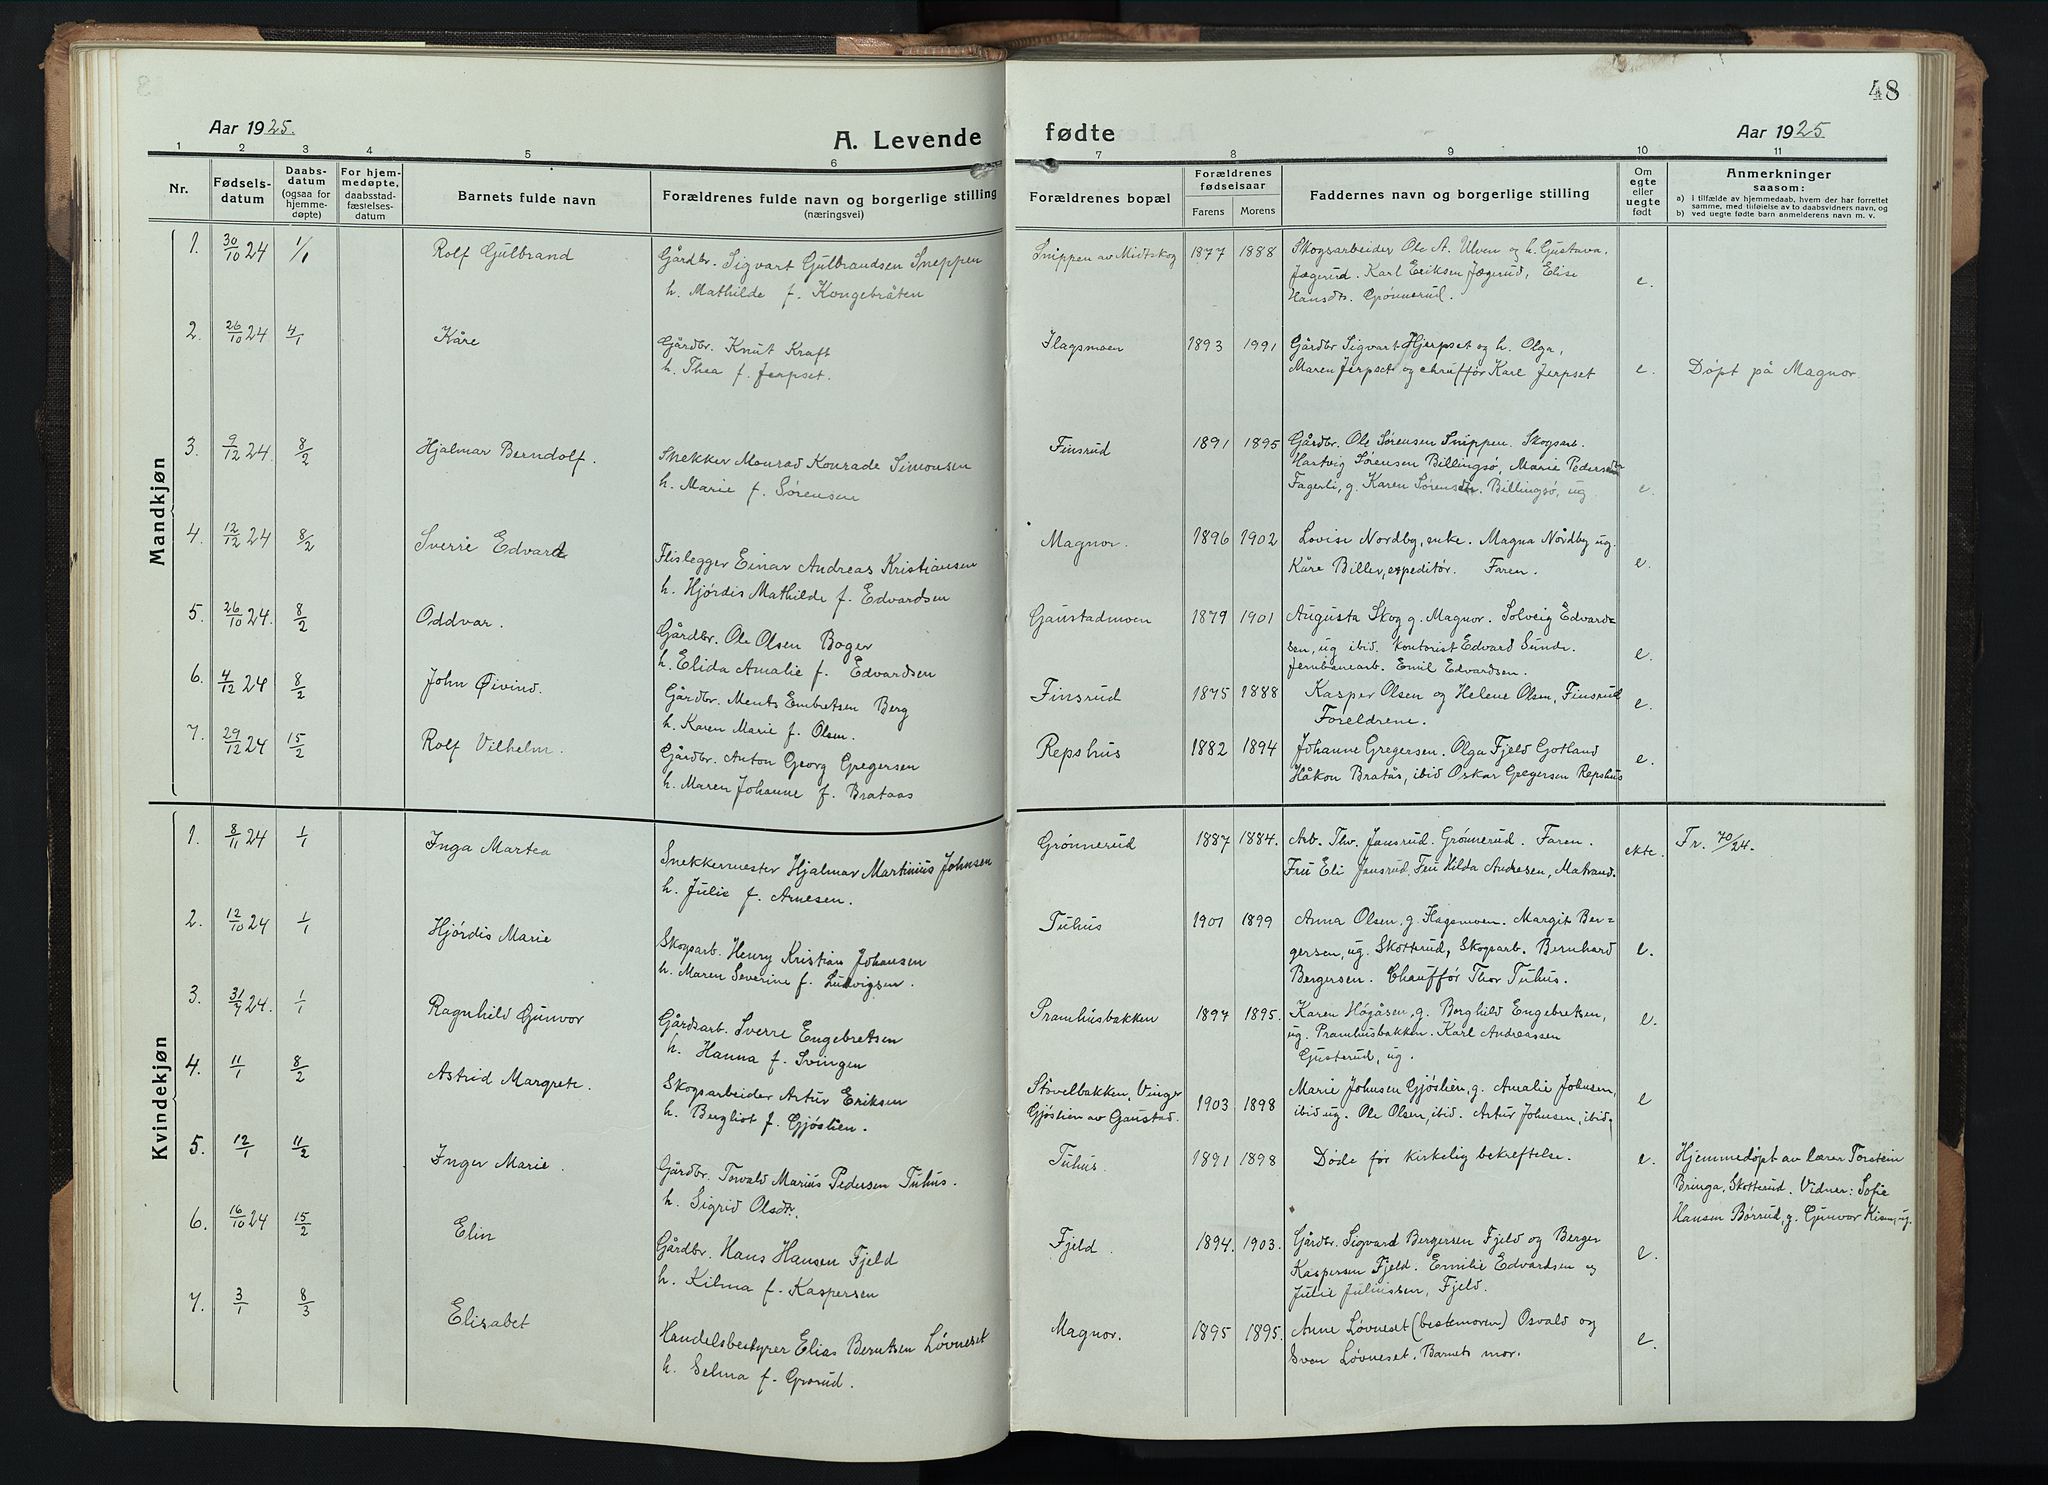 48
Aar 1925.
A. Levende
fødte
Aar 1925
1 2 3 4 5 6 7 8 9 10 11
Nr.
Fødsels-
datum
Daabs-
datum
(ogsaa for
hjemme-
døpte)
For hjem-
medøpte,
daabsstad-
fæstelses-
datum
Barnets fulde navn
Forældrenes fulde navn og borgerlige stilling
(næringsvei)
Forældrenes bopæl
Forældrenes
fødselsaar
Farens Morens
Faddernes navn og borgerlige stilling
Om
egte
eller
uegte
født
Anmerkninger
saasom:
a) i tilfælde av hjemmedaab, hvem der har forrettet
samme, med tilføielse av to daabsvidners navn, og
b) ved uegte fødte barn anmelderens navn m. v.
Mandkjøn
1. 30/10 24 1/1 Rolf Gulbrand
Gårdbr. Sigvart Gulbrandsen Sneppen
h. Mathilde f. Kongebråten
Snippen av Midtskog 1877 1888
Skogsarbeider Ole A. Ulven og h. Gustava.
Jægerud. Karl Eriksen Jægerud, Elise
Hansdtr. Grønnerud.
e.
2. 26/10 24 4/1 Kåre
Gårdbr. Knut Kraft
h. Thea f. Jerpset.
Flagsmoen 1893 1991
Gårdbr Sigvart Hjerpset og h. Olga,
Maren Jerpset og chauffør Karl Jerpset
e. Døpt på Magnor.
3. 9/12 24. 8/2 Hjalmar Berndolf.
Snekker Monrad Konrade Simonsen
h. Marie f. Sørensen
Finsrud 1891 1895
Gårdbr. Ole Sørensen Snippen. Skogsarb.
Hartvig Sørensen Billingsø, Marie Pedersdtr
Fagerli, g. Karen Sørensdtr. Billingsø, ug
e.
4. 12/12 24 8/2 Sverre Edvard
Flislegger Einar Andreas Kristiansen
h. Hjørdis Mathilde f. Edvardsen
Magnor. 1896 1902
Lovise Nordby, enke. Magna Nordby ug.
Kåre Biller, expeditør. Faren.
e.
5. 26/10 24. 8/2 Oddvar.
Gårdbr. Ole Olsen Boger
h. Elida Amalie f. Edvardsen
Gaustadmoen 1879 1901
Augusta Skog g. Magnor. Solveig Edvard=
sen, ug ibid. Kontorist Edvard Sundr.
Jernbanearb. Emil Edvardsen.
e.
6. 4/12 24 8/2 John Øivind.
Gårdbr. Ments Embretsen Berg
h. Karen Marie f. Olsen.
Finsrud 1875 1888
Kasper Olsen og Helene Olsen, Finsrud
Foreldrene.
e.
7. 29/12 24 15/2 Rolf Vilhelm.
Gårdbr. Anton Georg Gregersen
h. Maren Johanne f. Brataas
Repshus 1882 1894
Johanne Gregersen. Olga Fjeld Gotland
Håkon Bratås, ibid Oskar Gregersen Repshus
e.
Kvindekjøn
1. 8/11 24 1/1 Inga Martea
Snekkermester Hjalmar Martinius Johnsen
h. Julie f. Arnesen.
Grønnerud 1887 1884.
Arb. Thv. Jansrud. Grønnerud. Faren.
Fru Eli Jansrud, Fru Hilda Andresen, Matrand.
ekte. Fr. 70/24.
2. 12/10 24 1/1 Hjørdis Marie
Skogsarb. Henry Kristian Johansen
h. Maren Severine f. Ludvigsen.
Tuhus 1901 1899
Anna Olsen, g Flagsmoen. Margit Ber=
gersen, ug. Skotterud, Skogsarb. Bernhard
Bergersen. Chauffør Thor Tuhus.
e.
3. 31/7 24. 1/1 Ragnhild Gunvor
Gårdsarb. Sverre Engebretsen
h. Hanna f. Svingen
Pramhusbakken 1897 1895.
Karen Høgåsen, g. Borghild Engebretsen,
ug. Pramhusbakken. Karl Andreassen
Gusterud, ug.
e.
4. 11/1 8/2 Astrid Margrete.
Skogsarbeider Artur Eriksen
h. Bergliot f. Gjøslien.
Støvelbakken, Vinger
Gjøslien av Gaustad. 1903 1898
Marie Johnsen Gjøslien, g. Amalie Johnsen,
ibid ug. Ole Olsen, ibid. Artur Johnsen, ibid.
e
5. 12/1 11/2 Inger Marie.
Gårdbr. Torvald Marius Pedersen Tuhus.
h. Sigrid Olsdtr.
Tuhus. 1891 1898
Døde før kirkelig bekreftelse.
e. Hjemmedøpt av lærer Torstein
Bringa, Skotterud. Vidner: Sofie
Hansen Børrud, g. Gunvor ug.
6. 16/10 24 15/2 Elin
Gårdbr. Hans Hansen Fjeld
h. Kilma f. Kaspersen
Fjeld. 1894. 1903.
Gårdbr. Sigvard Bergersen Fjeld og Berger
Kaspersen Fjeld. Emilie Edvardsen og
Julie Juliussen, Fjeld.
e.
7. 3/1 8/3 Elisabet
Handelsbestyrer Elias Berntsen Løvneset
h. Selma f. Grorud.
Magnor. 1895 1895.
Anne Løvneset (bestemoren) Osvald og
Sven Løvneset. Barnets mor.
e.